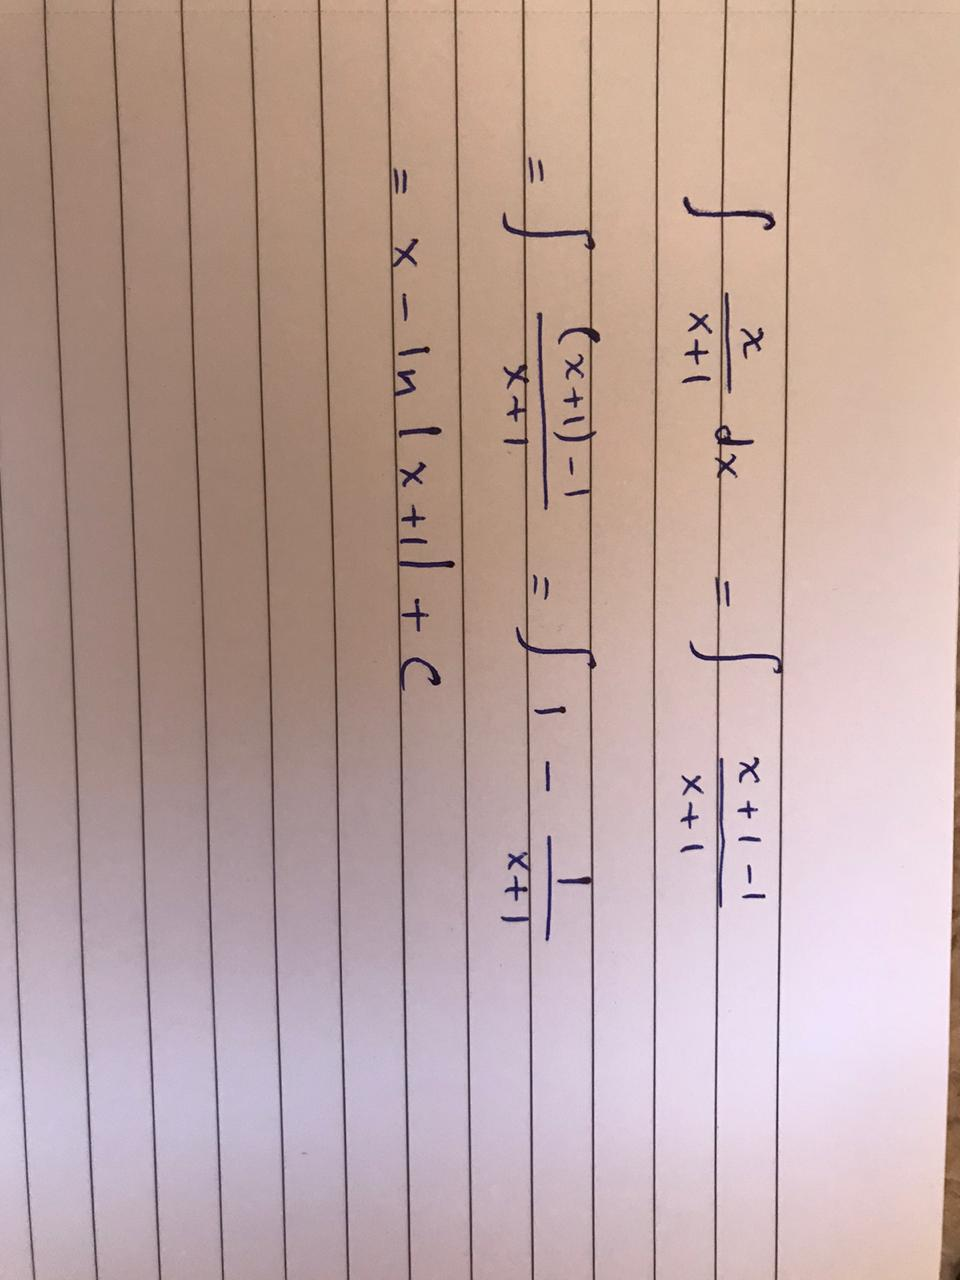 ∫ x/(x+1) dx = ∫ (x+1-1)/(x+1)
= ∫ ((x+1)-1)/(x+1) = ∫ 1 - 1/(x+1)
= x - ln|x+1| + C